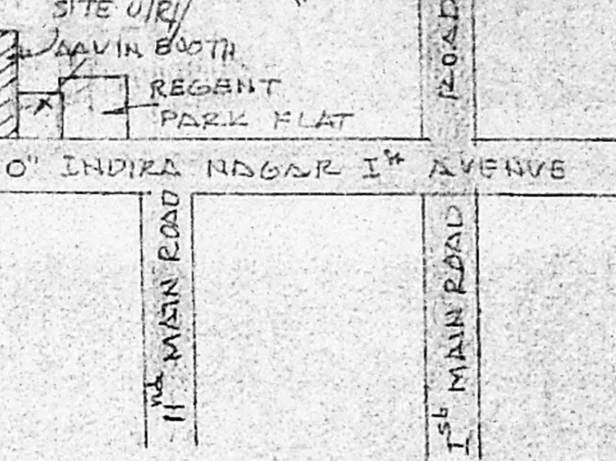 SITE U/R
AAVIN BOOTH
REGENT
PARK FLAT
ROAD
0" INDIRA NAGAR Ist AVENUE
IInd MAIN ROAD
Ist MAIN ROAD